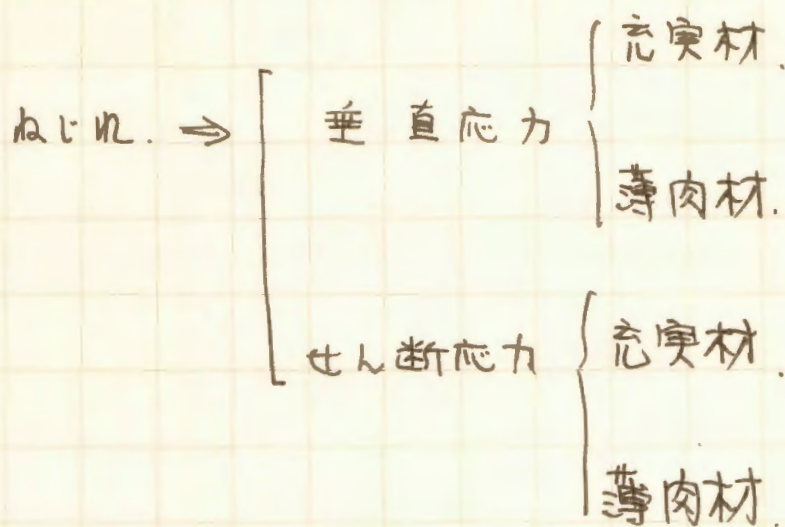 ねじれ. ⇒
垂直応力
充実材.
薄肉材.
せん断応力
充実材.
薄肉材.